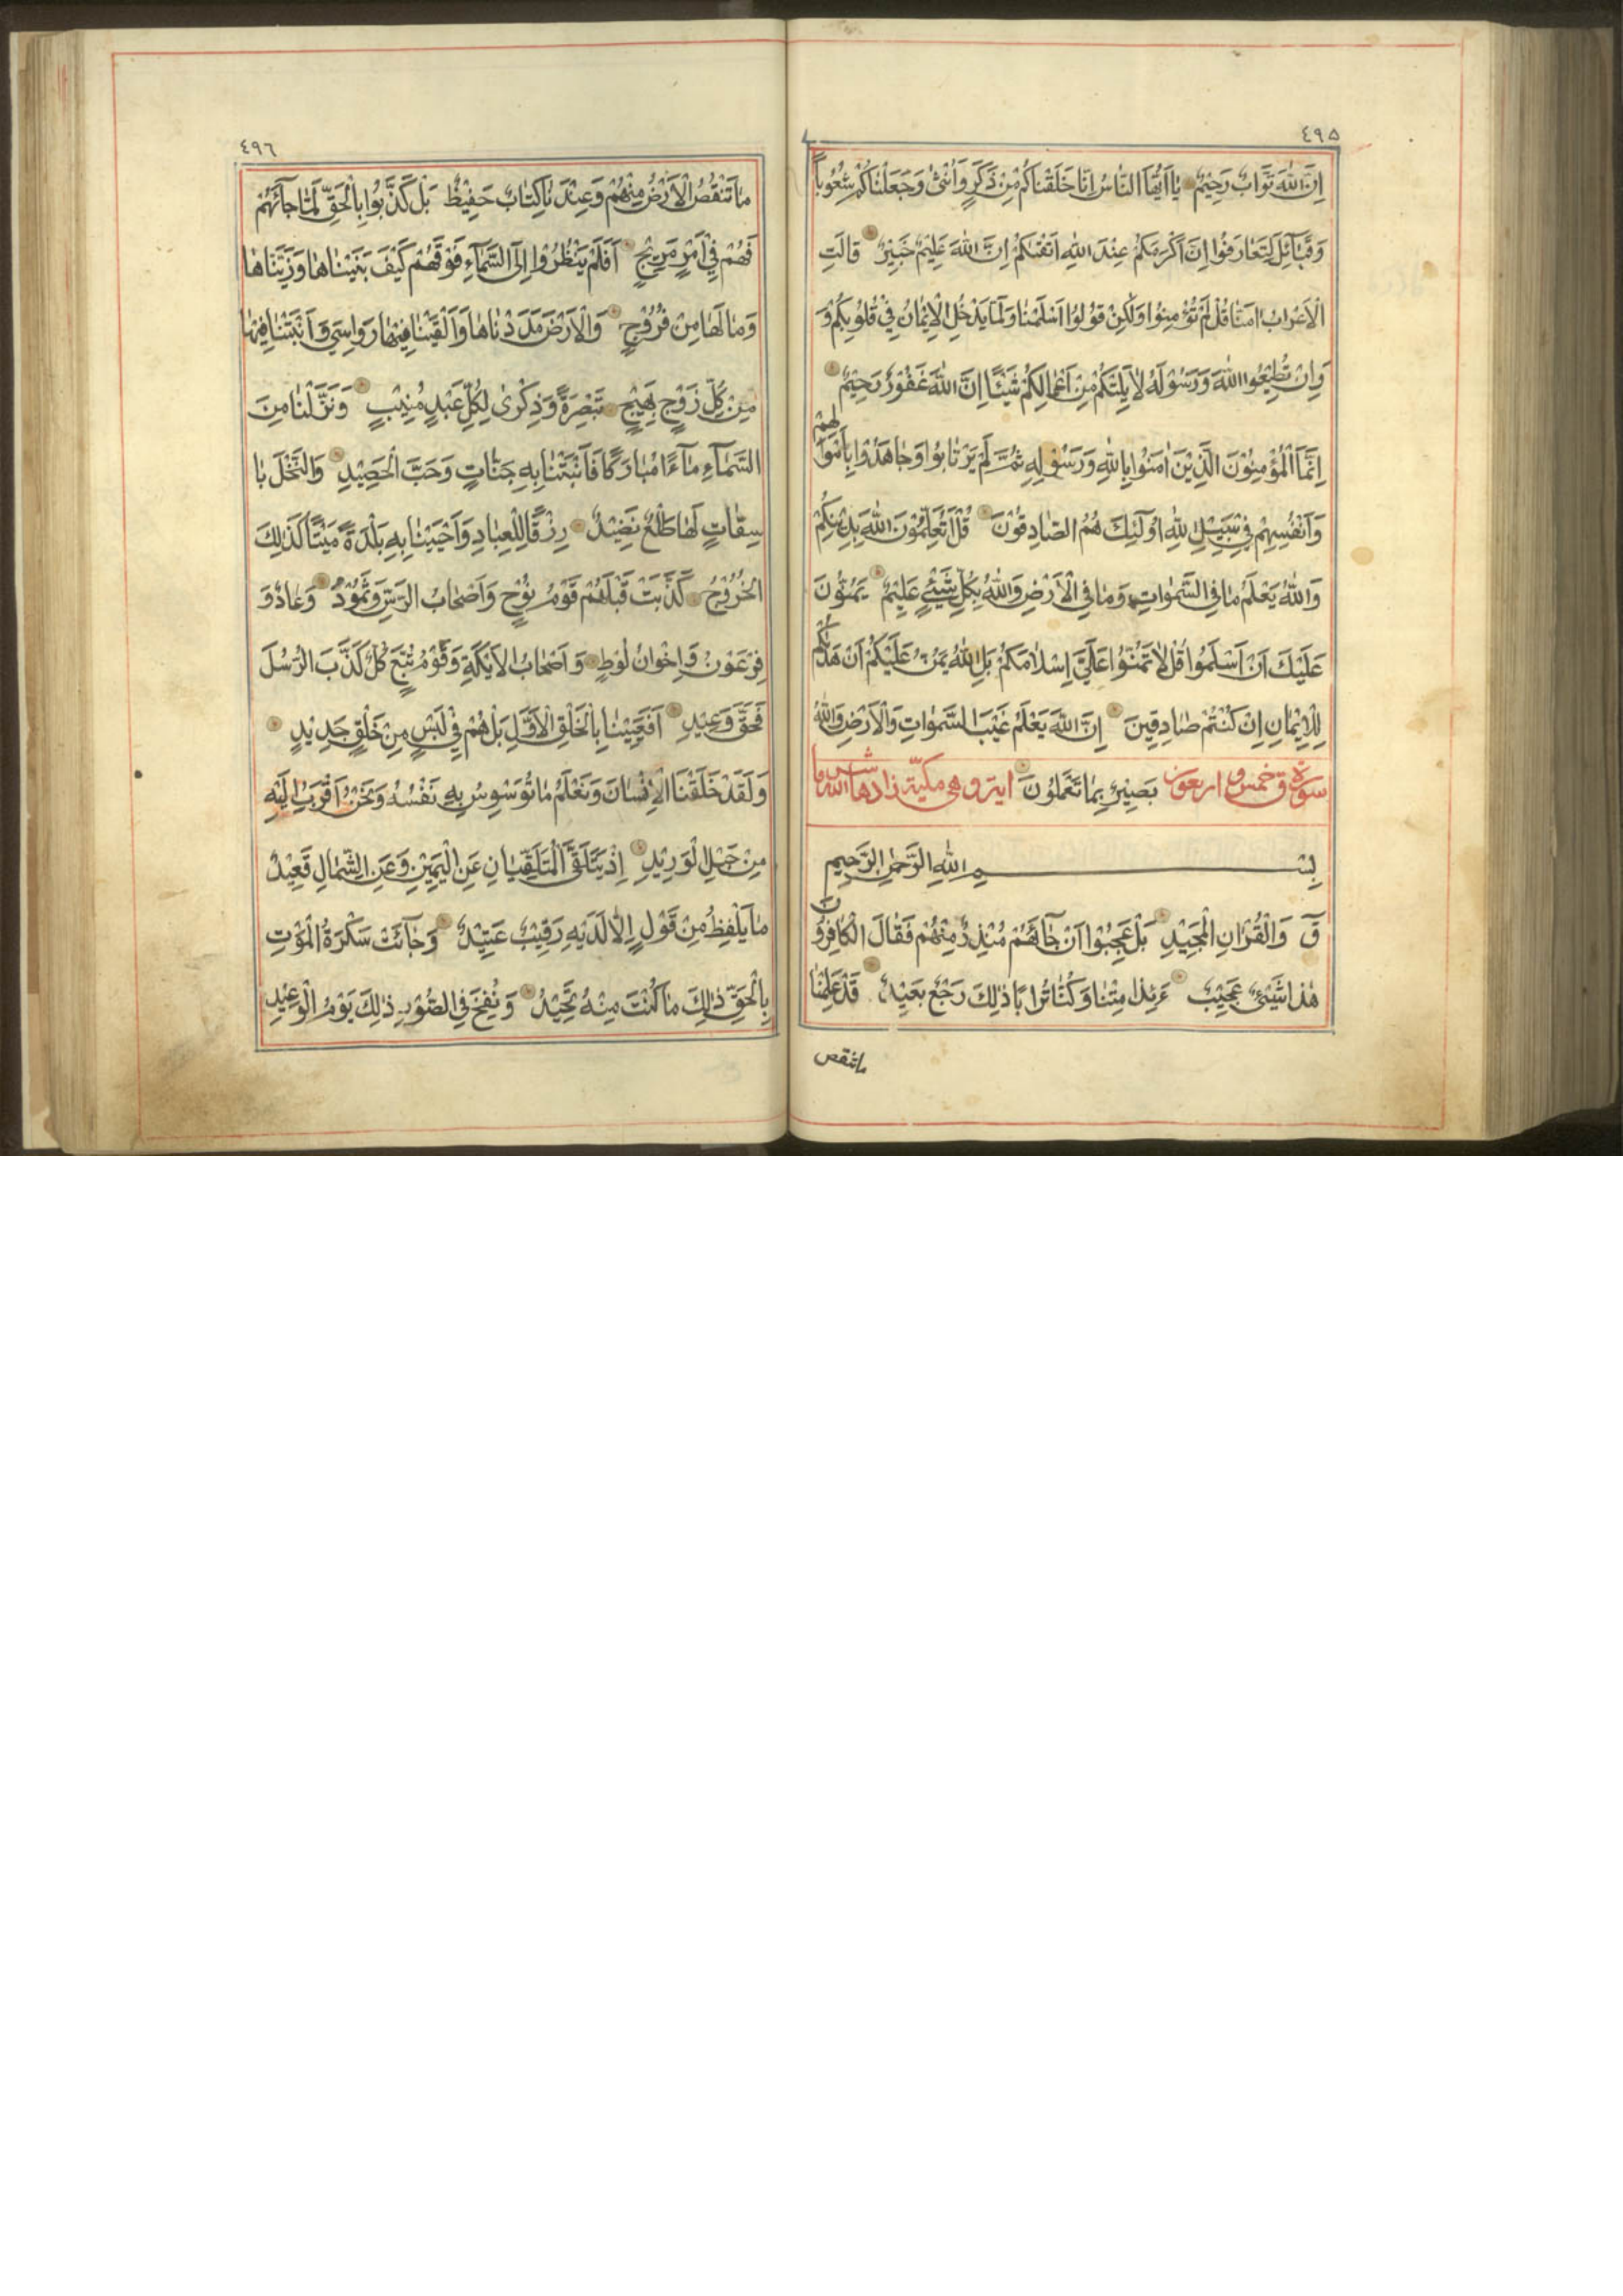 ٤٩٥
اِنَّ اللّٰهَ تَوَّابٌ رَحِیْمٌ یٰا اَیُّهَا النّٰاسُ اِنّٰا خَلَقْنٰاکُمْ مِنْ ذَکَرٍ وَاُنْثٰی وَجَعَلْنٰاکُمْ شُعُوْباً
وَقَبٰٓائِلَ لِتَعٰارَفُوْا اِنَّ اَکْرَمَکُمْ عِنْدَ اللّٰهِ اَتْقٰیکُمْ اِنَّ اللّٰهَ عَلِیْمٌ خَبِیْرٌ قٰالَتِ
الْاَعْرٰابُ اٰمَنّٰا قُلْ لَمْ تُؤْمِنُوْا وَلٰکِنْ قُوْلُوْا اَسْلَمْنٰا وَلَمّٰا یَدْخُلِ الْاِیْمٰانُ فِیْ قُلُوْبِکُمْ وَ
وَاِنْ تُطِیْعُوا اللّٰهَ وَرَسُوْلَهُ لٰا یَلِتْکُمْ مِنْ اَعْمٰالِکُمْ شَیْئًا اِنَّ اللّٰهَ غَفُوْرٌ رَحِیْمٌ
اِنَّمَا الْمُؤْمِنُوْنَ الَّذِیْنَ اٰمَنُوْا بِاللّٰهِ وَرَسُوْلِهِ ثُمَّ لَمْ یَرْتٰابُوْا وَجٰاهَدُوْا بِاَمْوٰالِهِمْ
وَاَنْفُسِهِمْ فِیْ سَبِیْلِ اللّٰهِ اُولٰٓئِكَ هُمُ الصّٰادِقُوْنَ قُلْ اَتُعَلِّمُوْنَ اللّٰهَ بِدِیْنِکُمْ
وَاللّٰهُ یَعْلَمُ مٰا فِی السَّمٰوٰاتِ وَمٰا فِی الْاَرْضِ وَاللّٰهُ بِکُلِّ شَیْئٍ عَلِیْمٌ یَمُنُّوْنَ
عَلَیْكَ اَنْ اَسْلَمُوْا قُلْ لٰا تَمُنُّوْا عَلَیَّ اِسْلٰامَکُمْ بَلِ اللّٰهُ یَمُنُّ عَلَیْکُمْ اَنْ هَدٰیکُمْ
لِلْاِیْمٰانِ اِنْ کُنْتُمْ صٰادِقِیْنَ اِنَّ اللّٰهَ یَعْلَمُ غَیْبَ السَّمٰوٰاتِ وَالْاَرْضِ وَاللّٰهُ
سورة ق خمس و اربعون بَصِیْرٌ بِمٰا تَعْمَلُوْنَ ایة و هی مکیّة زادها اللّٰه شرفا
بِسْمِ اللّٰهِ الرَّحْمٰنِ الرَّحِیْمِ
قٓ وَالْقُرْاٰنِ الْمَجِیْدِ بَلْ عَجِبُوْا اَنْ جٰٓائَهُمْ مُنْذِرٌ مِنْهُمْ فَقٰالَ الْکٰافِرُوْنَ
هٰذٰا شَیْئٌ عَجِیْبٌ ءَاِذٰا مِتْنٰا وَکُنّٰا تُرٰابًا ذٰلِكَ رَجْعٌ بَعِیْدٌ قَدْ عَلِمْنٰا
ماتنقص
٤٩٦
مٰا تَنْقُصُ الْاَرْضُ مِنْهُمْ وَعِنْدَنٰا کِتٰابٌ حَفِیْظٌ بَلْ کَذَّبُوْا بِالْحَقِّ لَمّٰا جٰٓائَهُمْ
فَهُمْ فِیْ اَمْرٍ مَرِیْجٍ اَفَلَمْ یَنْظُرُوْا اِلَی السَّمٰٓاءِ فَوْقَهُمْ کَیْفَ بَنَیْنٰاهٰا وَزَیَّنّٰاهٰا
وَمٰا لَهٰا مِنْ فُرُوْجٍ وَالْاَرْضَ مَدَدْنٰاهٰا وَاَلْقَیْنٰا فِیْهٰا رَوٰاسِیَ وَاَنْبَتْنٰا فِیْهٰا
مِنْ کُلِّ زَوْجٍ بَهِیْجٍ تَبْصِرَةً وَذِکْرٰی لِکُلِّ عَبْدٍ مُنِیْبٍ وَنَزَّلْنٰا مِنَ
السَّمٰٓاءِ مٰٓاءً مُبٰارَکًا فَاَنْبَتْنٰا بِهِ جَنّٰاتٍ وَحَبَّ الْحَصِیْدِ وَالنَّخْلَ بٰا
سِقٰاتٍ لَهٰا طَلْعٌ نَضِیْدٌ رِزْقًا لِلْعِبٰادِ وَاَحْیَیْنٰا بِهِ بَلْدَةً مَیْتًا کَذٰلِكَ
الْخُرُوْجُ کَذَّبَتْ قَبْلَهُمْ قَوْمُ نُوْحٍ وَاَصْحٰابُ الرَّسِّ وَثَمُوْدُ وَعٰادٌ وَ
فِرْعَوْنُ وَاِخْوٰانُ لُوْطٍ وَاَصْحٰابُ الْاَیْکَةِ وَقَوْمُ تُبَّعٍ کُلٌّ کَذَّبَ الرُّسُلَ
فَحَقَّ وَعِیْدِ اَفَعَیِیْنٰا بِالْخَلْقِ الْاَوَّلِ بَلْ هُمْ فِیْ لَبْسٍ مِنْ خَلْقٍ جَدِیْدٍ
وَلَقَدْ خَلَقْنَا الْاِنْسٰانَ وَنَعْلَمُ مٰا تُوَسْوِسُ بِهِ نَفْسُهُ وَنَحْنُ اَقْرَبُ اِلَیْهِ
مِنْ حَبْلِ الْوَرِیْدِ اِذْ یَتَلَقَّی الْمُتَلَقِّیٰانِ عَنِ الْیَمِیْنِ وَعَنِ الشِّمٰالِ قَعِیْدٌ
مٰا یَلْفِظُ مِنْ قَوْلٍ اِلّٰا لَدَیْهِ رَقِیْبٌ عَتِیْدٌ وَجٰٓائَتْ سَکْرَةُ الْمَوْتِ
بِالْحَقِّ ذٰلِكَ مٰا کُنْتَ مِنْهُ تَحِیْدُ وَنُفِخَ فِی الصُّوْرِ ذٰلِكَ یَوْمُ الْوَعِیْدِ